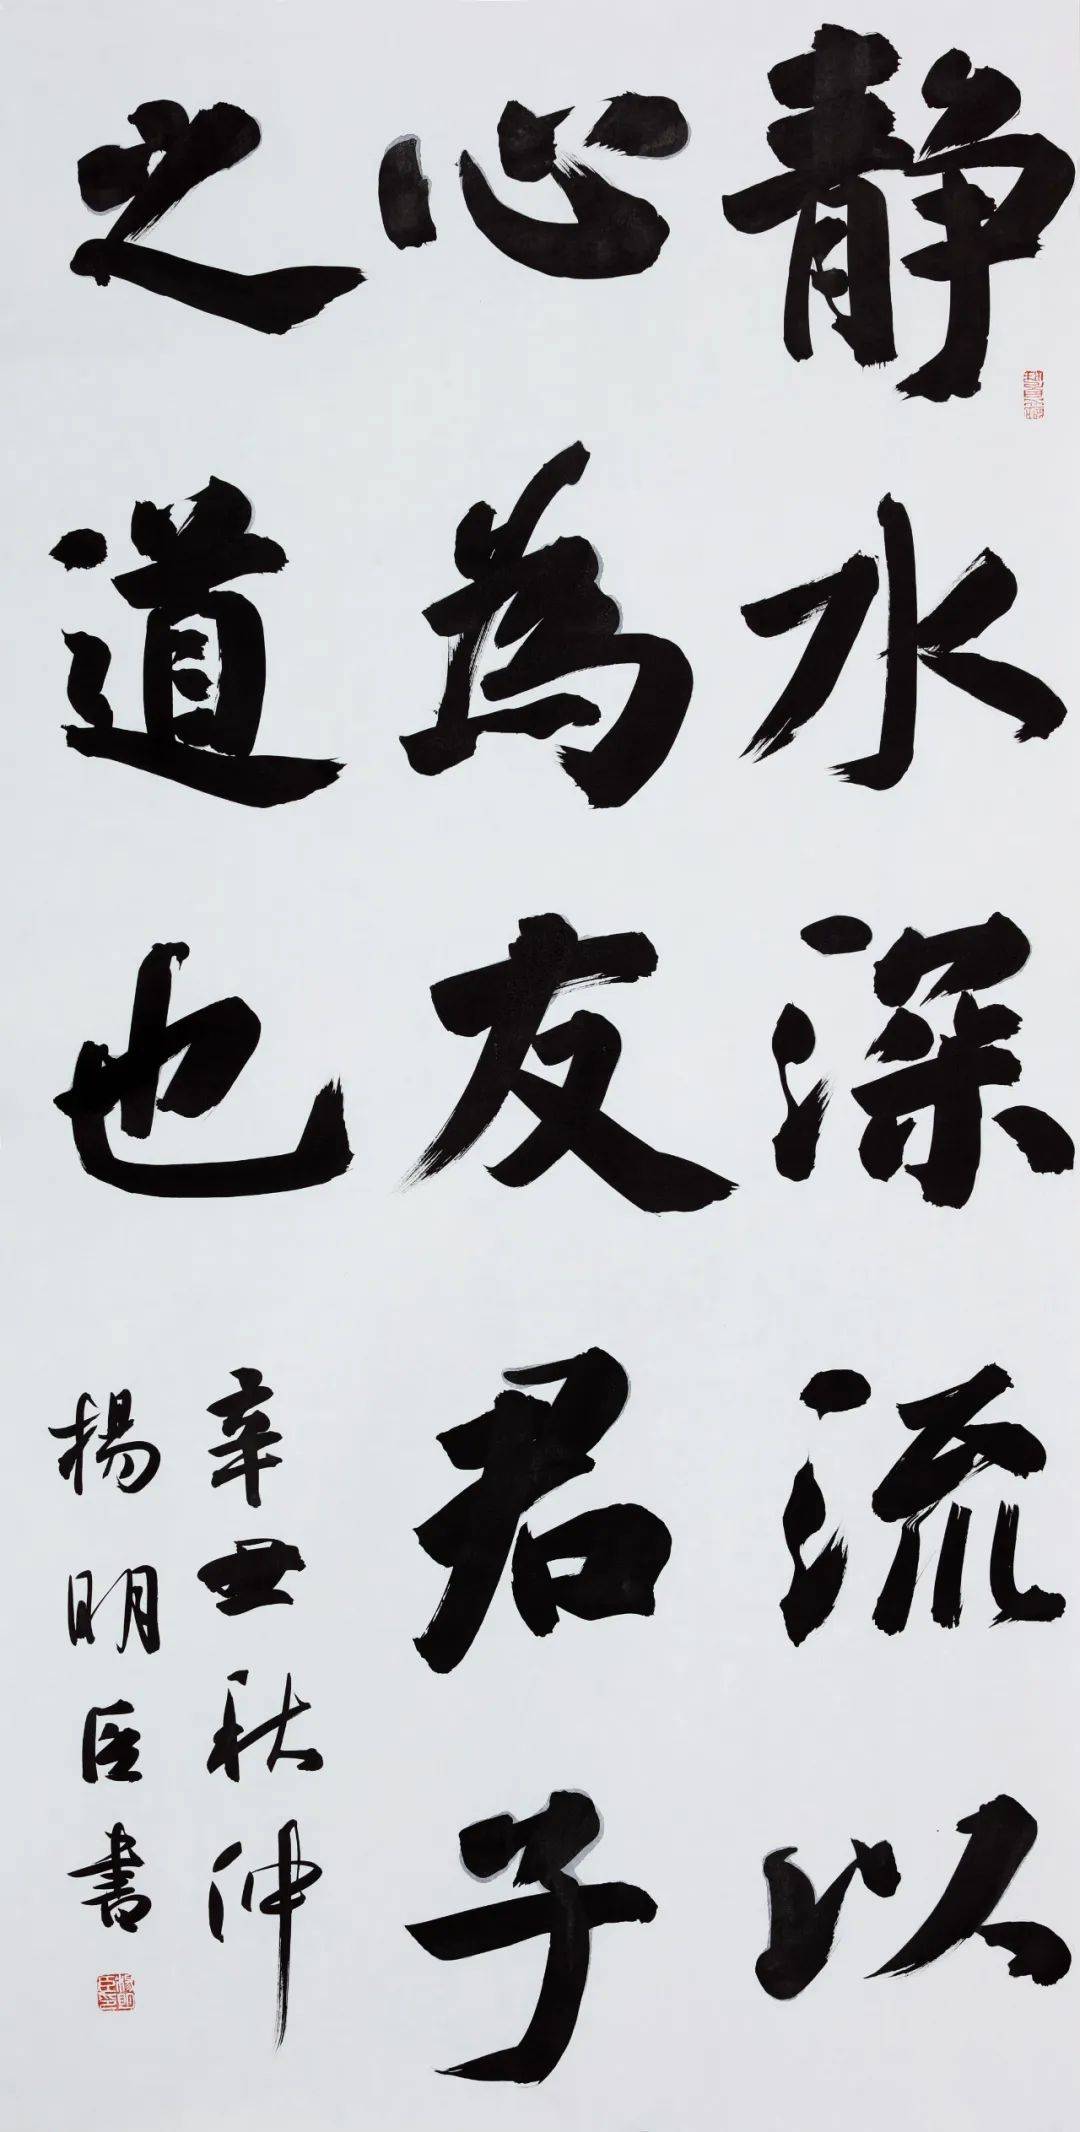 静水深流以
心為友君子
之道也
辛丑秋仲
楊明臣書